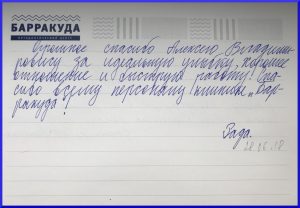 БАРРАКУДА
ОРТОДОНТИЧЕСКИЙ ЦЕНТР
Огромное спасибо Алексею Владими-
ровичу за идеальную улыбку, хорошее
отношение и быструю работу! Спа-
сибо всему персоналу клиники „Бар-
ракуда!
Рада.
28.06.18